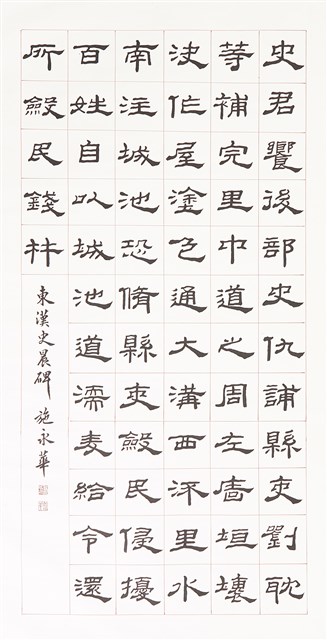 史君饗後部史仇誧縣吏劉耽
等補完里中道之周左廧垣壞
決作屋塗色通大溝西流里水
南注城池恐脩縣吏斂民侵擾
百姓自以城池道濡麦給令還
所斂民錢材
東漢史晨碑 施永華